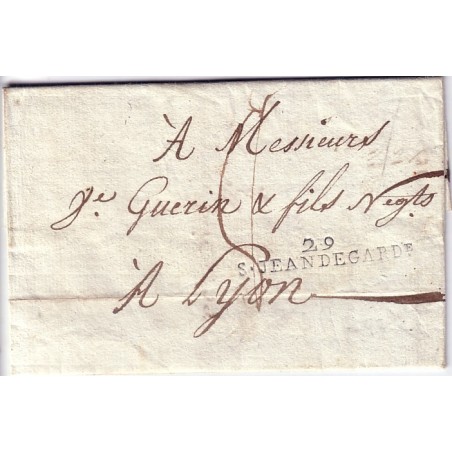 À Messieurs
Ve Guerin & fils Negts
29
S.JEANDEGARDE
À Lyon